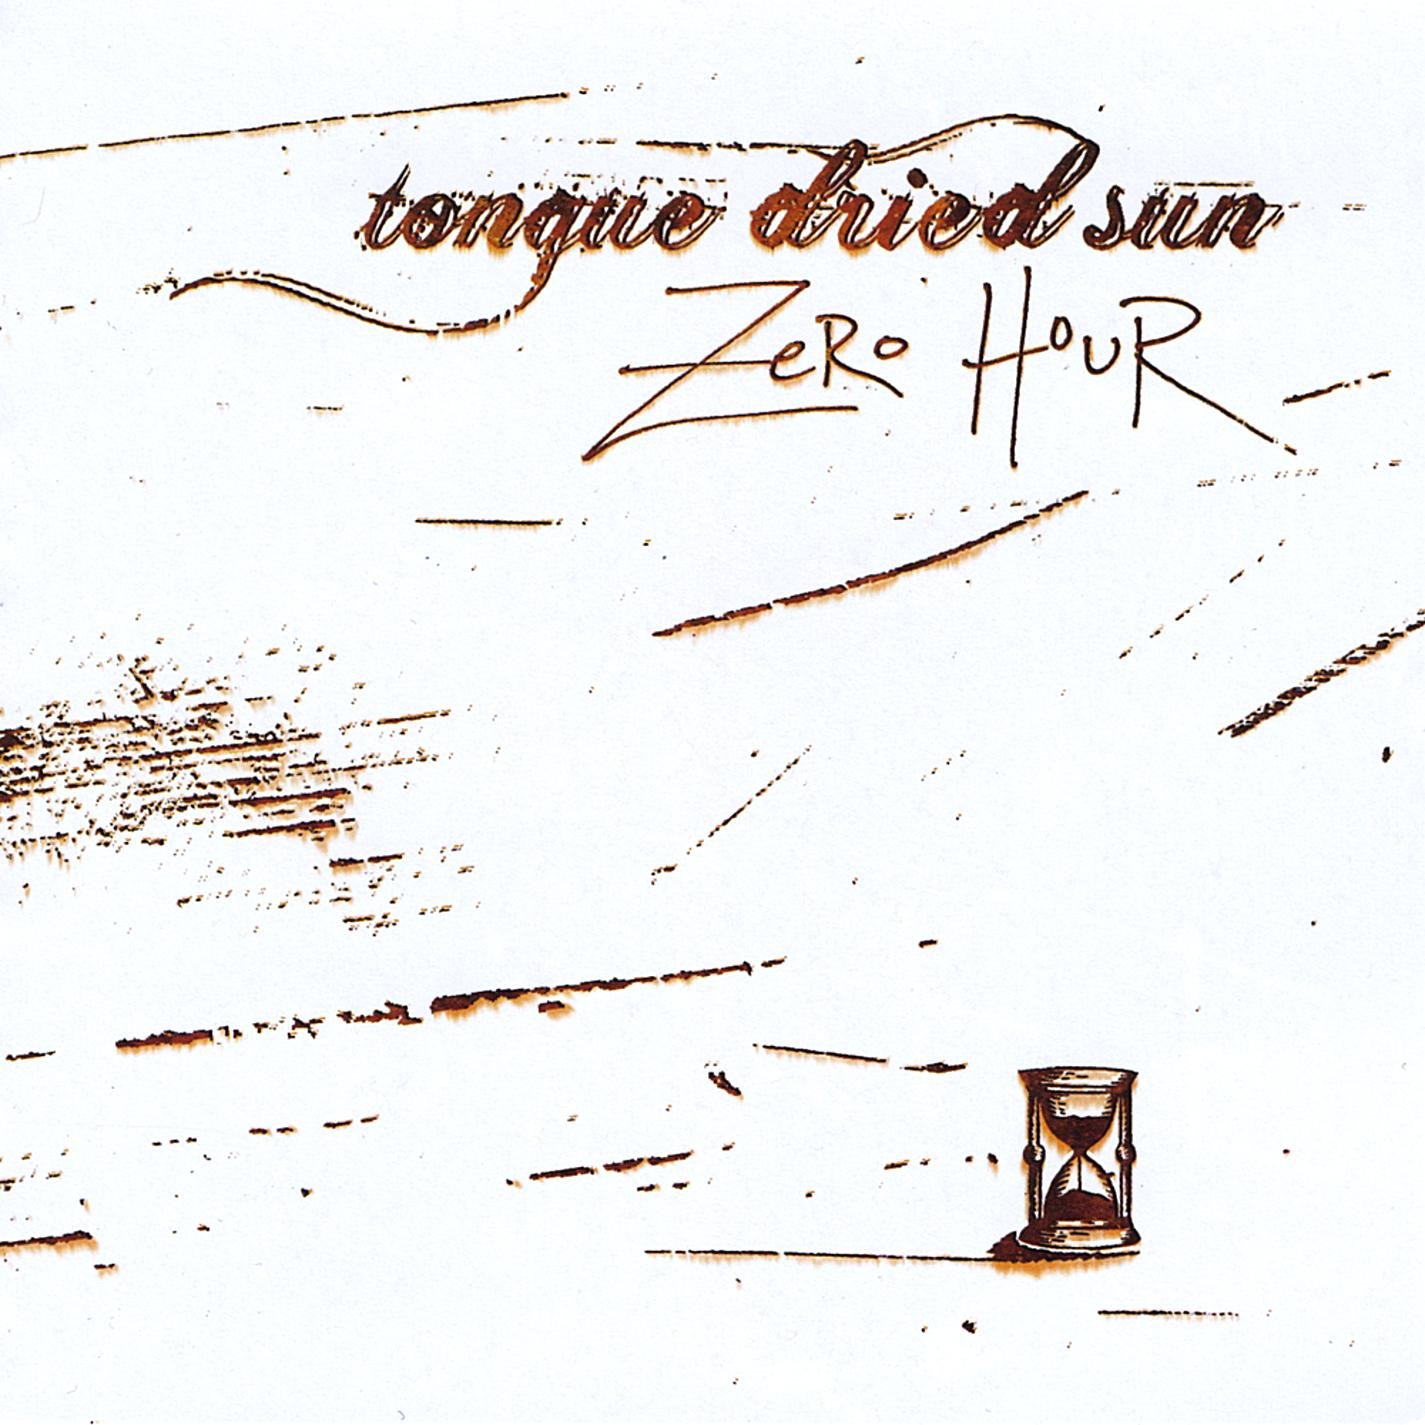 tongue dried sun
Zero Hour